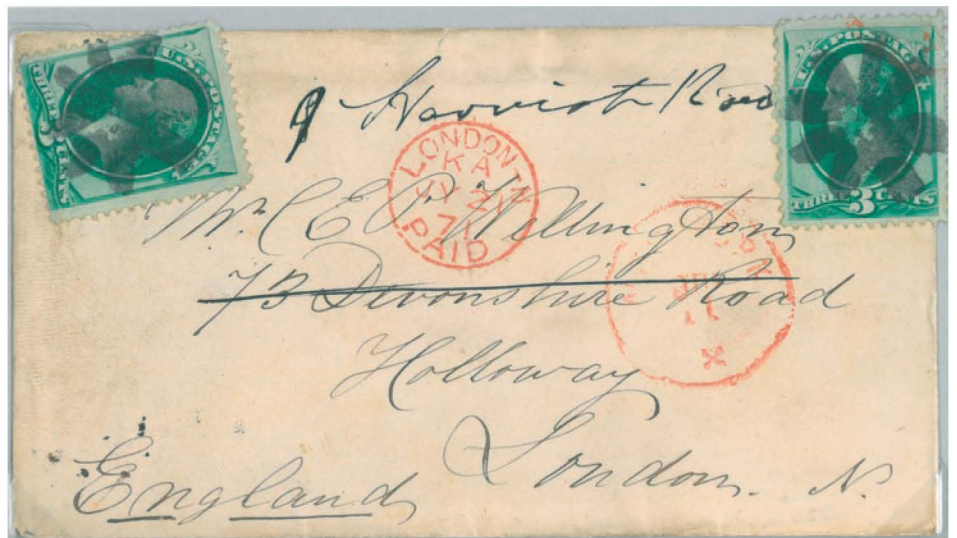 U.S. POSTAGE
THREE 3 CENTS
U.S. POSTAGE
THREE 3 CENTS
9 Road
LONDON N
KA
21
71
PAID
Mr. C. E. P. Wellington
73 Devonshire Road
Holloway
London. N.
England